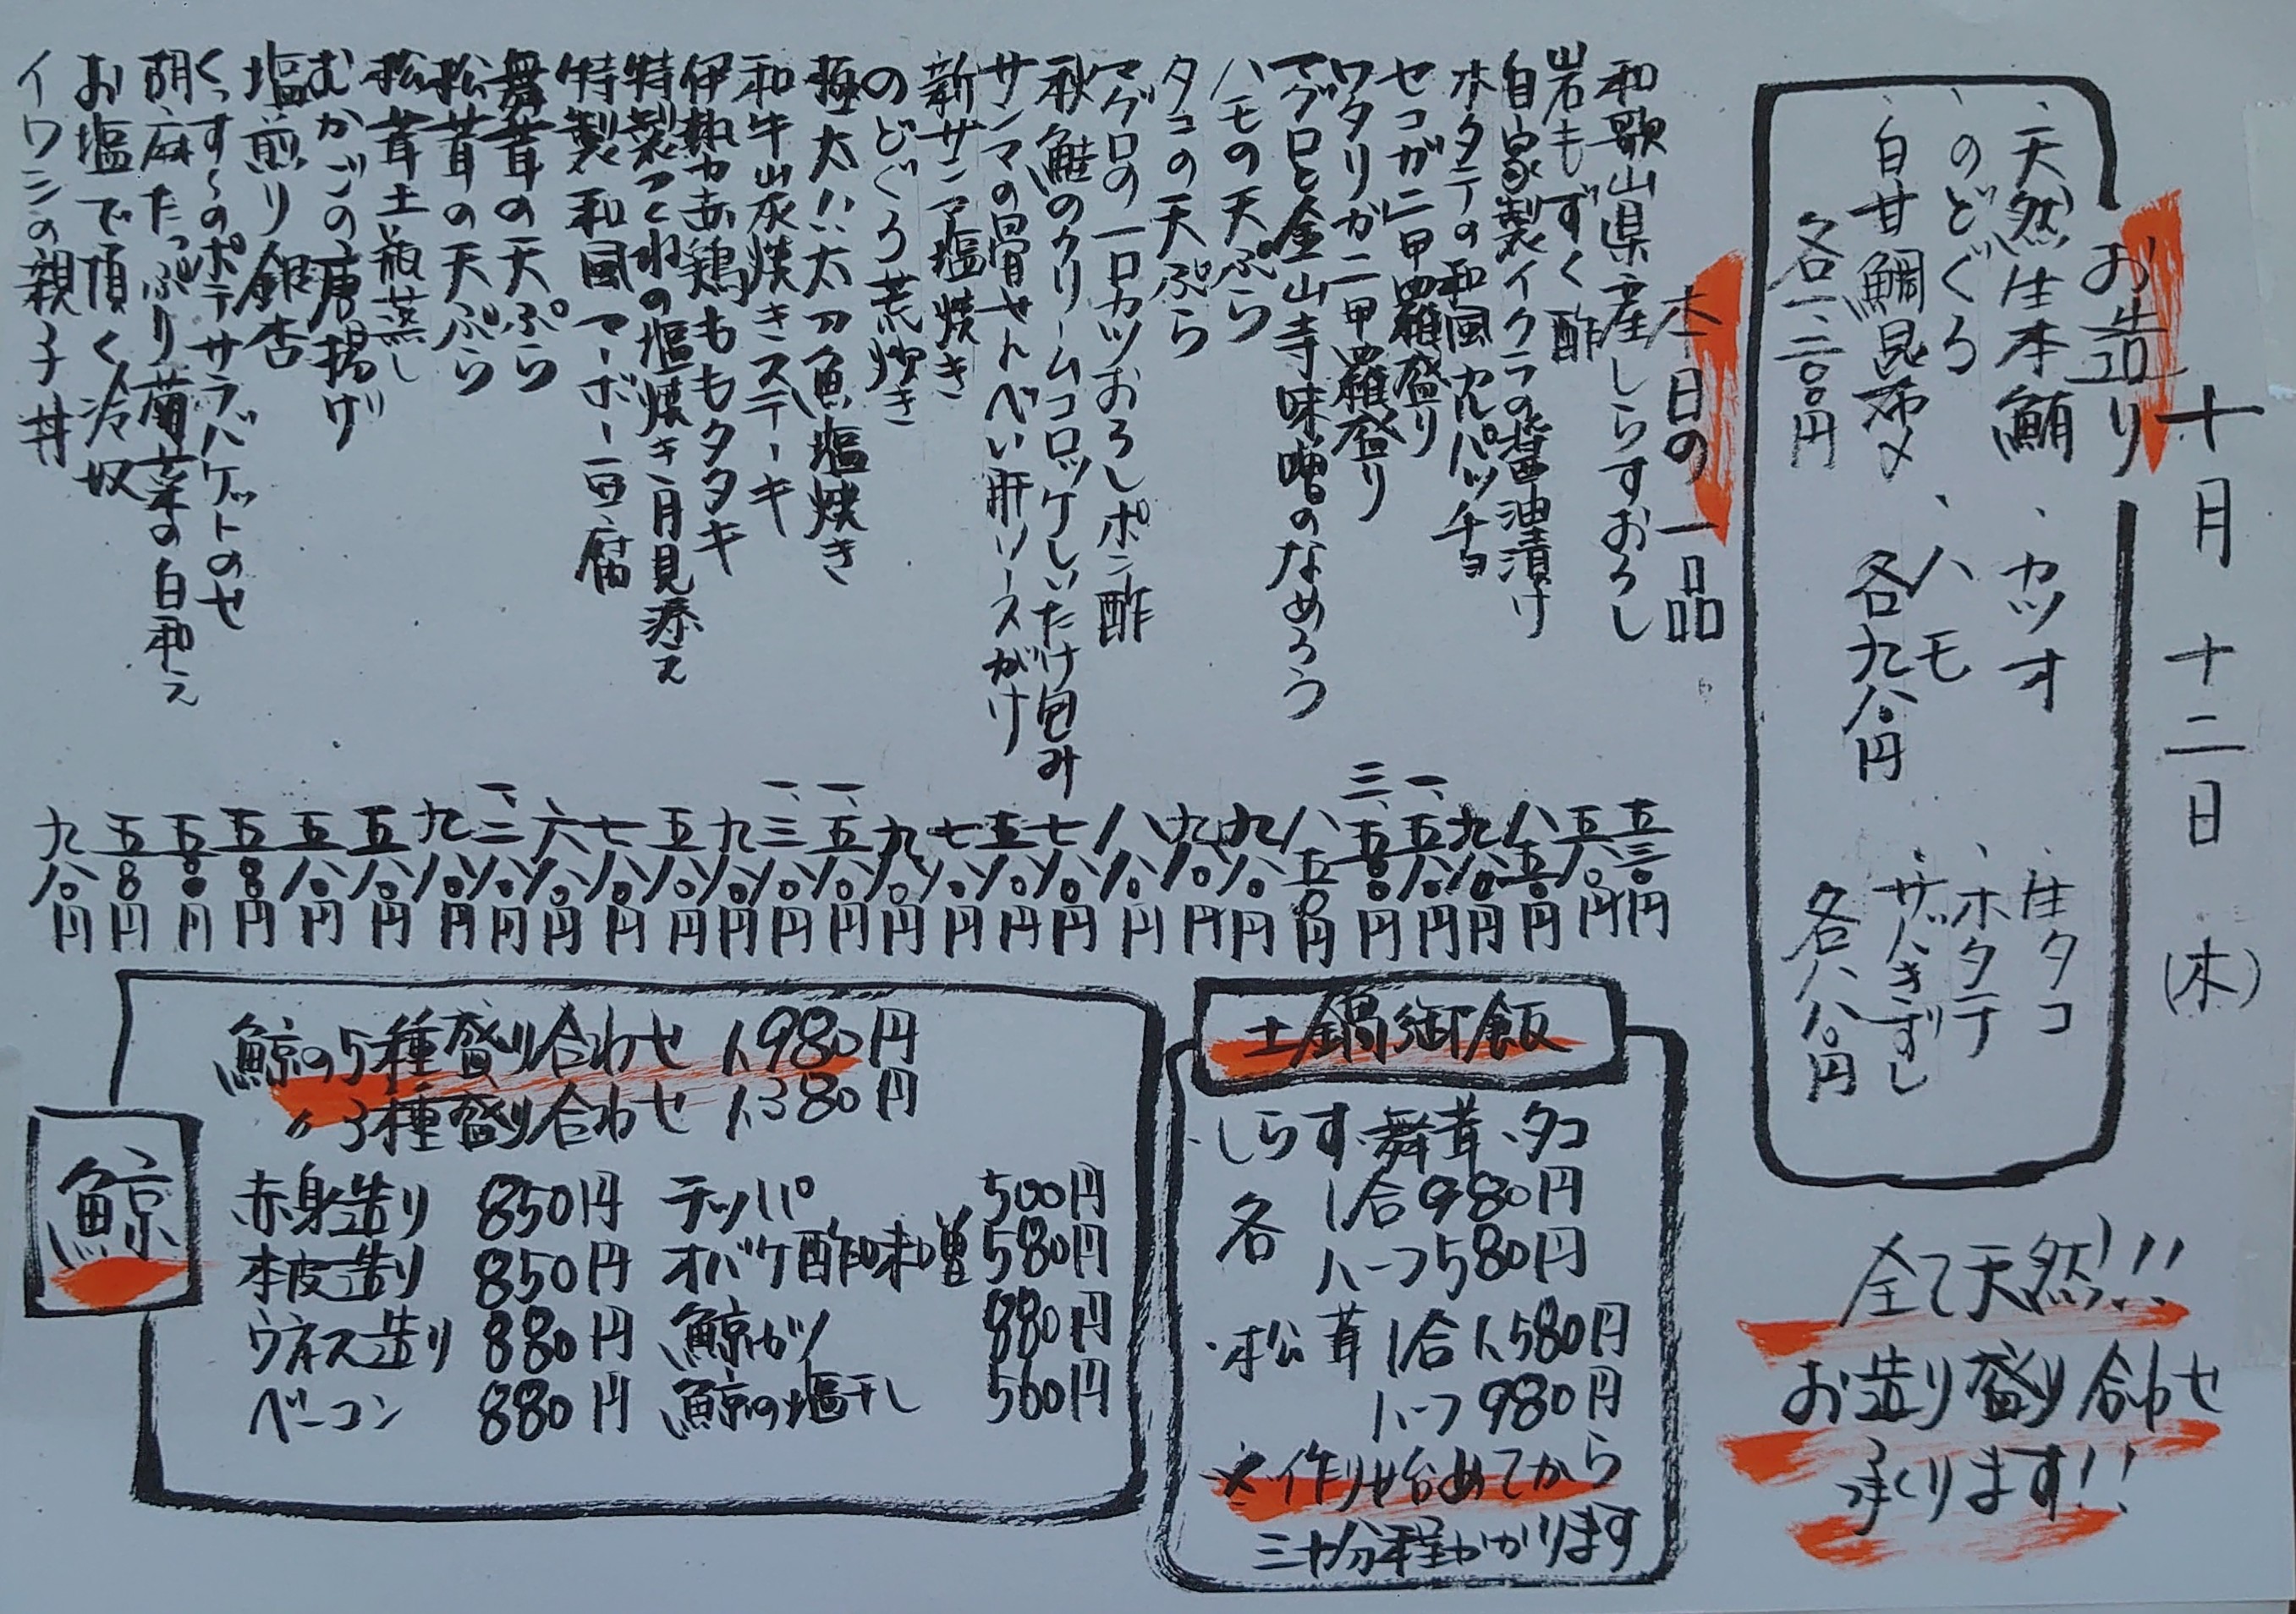 十月十二日(木)
お造り
、天然生本鮪 、カツオ 、生タコ
、のどぐろ 、ハモ 、ホタテ
、白甘鯛昆布〆 各九八〇円 、ザバきずし
各一、二三〇円 各八八〇円
全て天然!!
お造り盛り合わせ
承ります!!
本日の一品
和歌山県産しらすおろし 五三〇円
岩もずく酢 五八〇円
自家製イクラの醤油漬け 八五〇円
ホタテの和風カルパッチョ 九八〇円
セコガニ甲羅盛り 一、五八〇円
ワタリガニ甲羅盛り 三、五〇〇円
マグロと金山寺味噌のなめろう 八五〇円
ハモの天ぷら 九八〇円
タコの天ぷら 九八〇円
マグロの一口カツおろしポン酢 八八〇円
秋鮭のクリームコロッケしいたけ包み 七八〇円
サンマの骨せんべい肝ソースがけ 五八〇円
新サンマ塩焼き 七八〇円
のどぐろ荒炊き 九八〇円
極太!!太刀魚塩焼き 一、五八〇円
和牛炭焼きステーキ 一、三八〇円
伊勢赤鶏ももタタキ 九八〇円
特製つくねの塩焼き 月見添え 五八〇円
特製和風マーボー豆腐 七八〇円
舞茸の天ぷら 六八〇円
松茸の天ぷら 一、二八〇円
松茸土瓶蒸し 九八〇円
むかごの唐揚げ 五八〇円
塩煎り銀杏 五八〇円
くっす〜のポテサラバケットのせ
胡麻たっぷり菊菜の白和え 五〇〇円
お塩で頂く冷奴
イワシの親子丼 九八〇円
土鍋御飯
・しらす・舞茸・タコ
各 1合980円
ハーフ580円
・松茸 1合1,580円
ハーフ980円
※作り始めてから
三十分程かかります
鯨
鯨の5種盛り合わせ 1,980円
〃3種盛り合わせ 1,380円
赤身造り 850円 テッパ 500円
本皮造り 850円 オバケ酢味噌 580円
ウネス造り 880円 鯨カツ 880円
ベーコン 880円 鯨の塩干し 560円